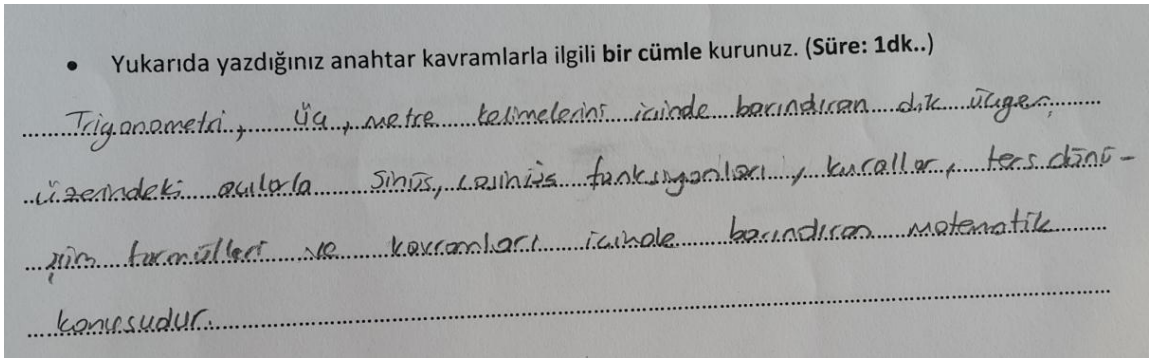 • Yukarıda yazdığınız anahtar kavramlarla ilgili bir cümle kurunuz. (Süre: 1dk..)
Trigonometri, üç, metre kelimelerini içinde barındıran dik üçgen
üzerindeki açılarla sinüs, cosinüs fonksiyonları, kurallar, ters dönü-
şüm formülleri ve kavramları içinde barındıran matematik
konusudur.